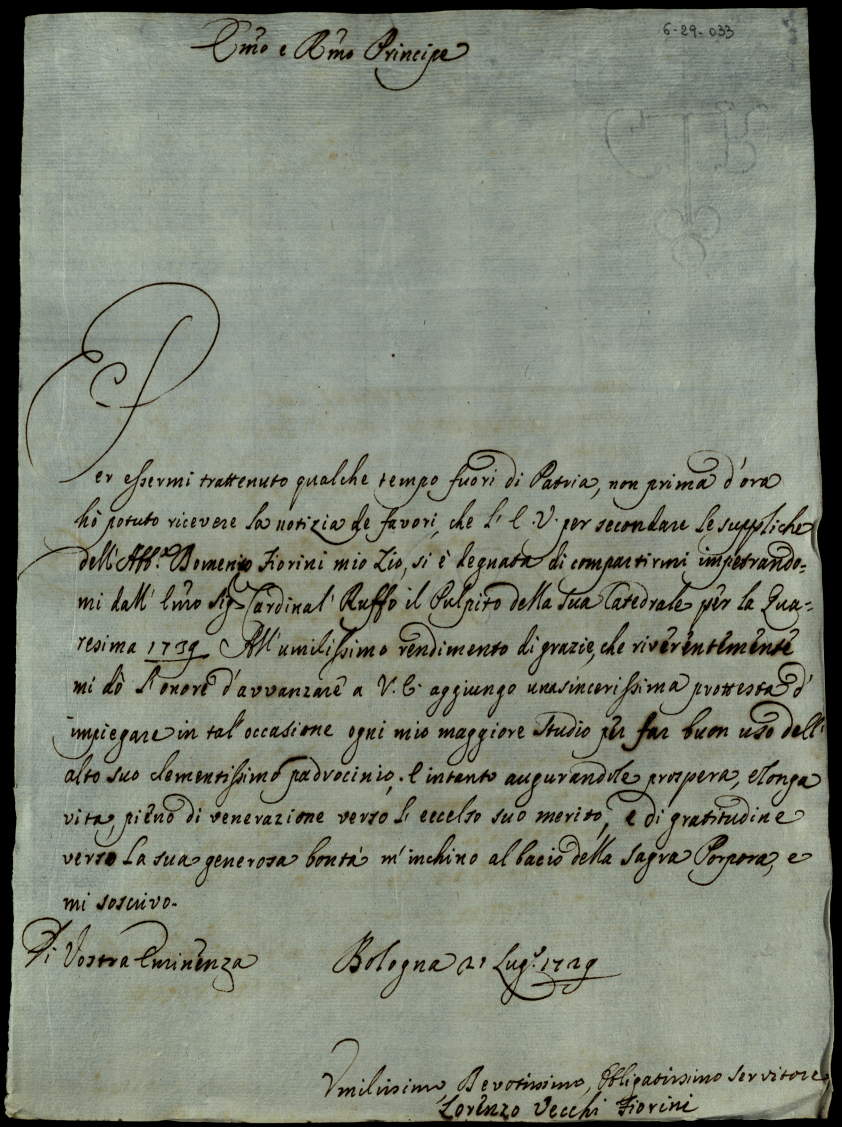 6-29-033
Emo e Rmo Principe
Per essermi trattenuto qualche tempo fuori di Patria, non prima d'ora
hò potuto ricevere la notizia de favori, che l'E.V. per secondare le suppliche
dell'Abb.e Domenico Fiorini mio Zio, si è degnata di compartirmi impetrando-
mi dall'Emo Sig. Cardinal' Ruffo il Pulpito della sua Catedrale per la Qua-
resima 1739 All'umilissimo rendimento di grazie, che riverentemente
mi dò l'onore d'avvanzare a V.E. aggiungo una sincerissima prottesta d'
impiegare in tal'occasione ogni mio maggiore studio per far buon uso dell'
alto suo clementissimo padrocinio, E intanto augurandole prospera, e longa
vita, pieno di venerazione verso l'eccelso suo merito, e di gratitudine
verso la sua generosa bontà m'inchino al bacio della Sagra Porpora, e
mi soscrivo.
Di Vostra Eminenza Bologna 21 Lug.o 1729
Umilissimo, Devotissimo, Obligatissimo Servitore
Lorenzo Vecchi Fiorini